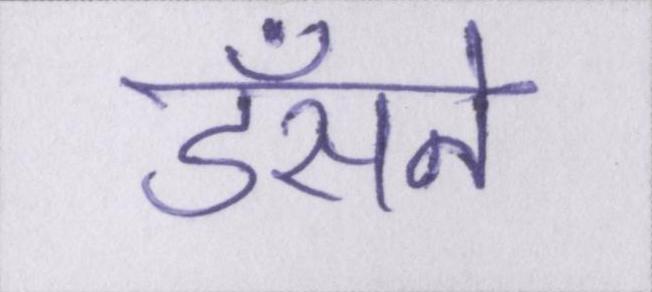 डँसने